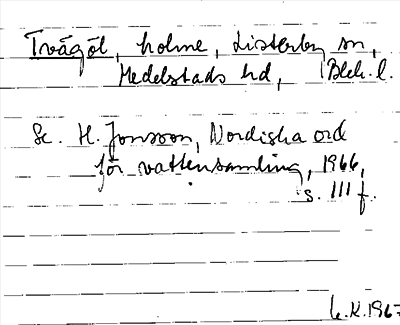 Tvägöl, holme, Listerby sn,
Medelstads hd, Blek. l.
Se H. Jonsson, Nordiska ord
för vattensamling, 1966,
s. 111 f.
K.1967